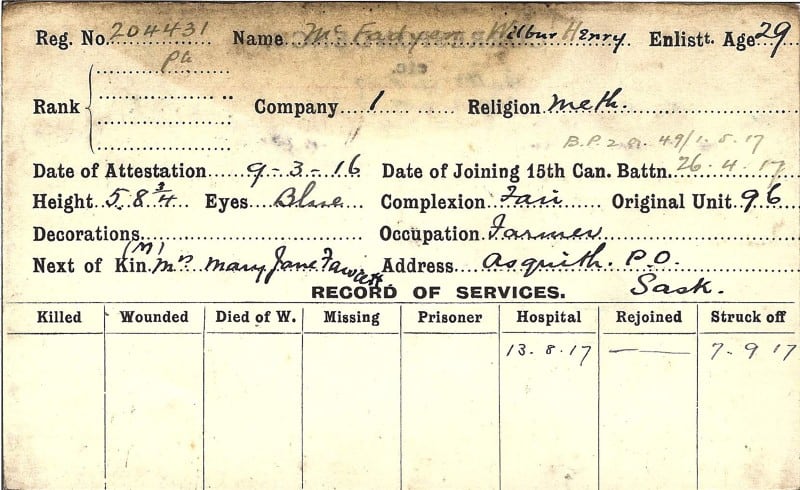 Reg. No. 204431 Name McFadyen Wilbur Henry Enlistt. Age 29
Pa
Rank Company 1 Religion Meth.
B.P.2 49/1.5.17
Date of Attestation 9-3-16 Date of Joining 15th Can. Battn. 26.4.17
Height 5.8 3/4 Eyes Blue Complexion Fair Original Unit 96
Decorations Occupation Farmer
Next of Kin (M) Mrs Mary Jane Fawcett Address Asquith. P.O.
Sask.
RECORD OF SERVICES.
Killed Wounded Died of W. Missing Prisoner Hospital Rejoined Struck off
13.8.17 — 7.9.17